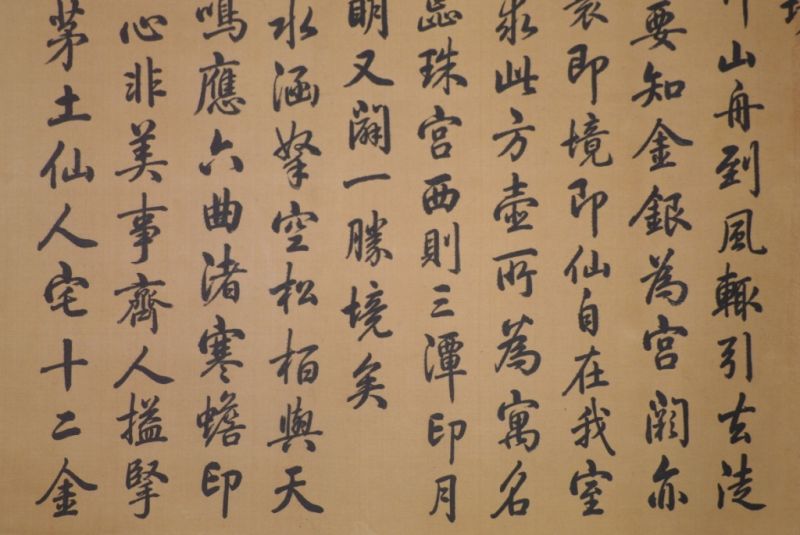 山舟到風輒引去徒
要知金銀為宮闕亦
寰即境即仙自在我室
求此方壺所為寓名
珠宮西則三潭印月
明又闢一勝境矣
水涵拏空松柏與天
鳴應六曲渚寒蟾印
心非美事齊人搤掔
茅土仙人宅十二金